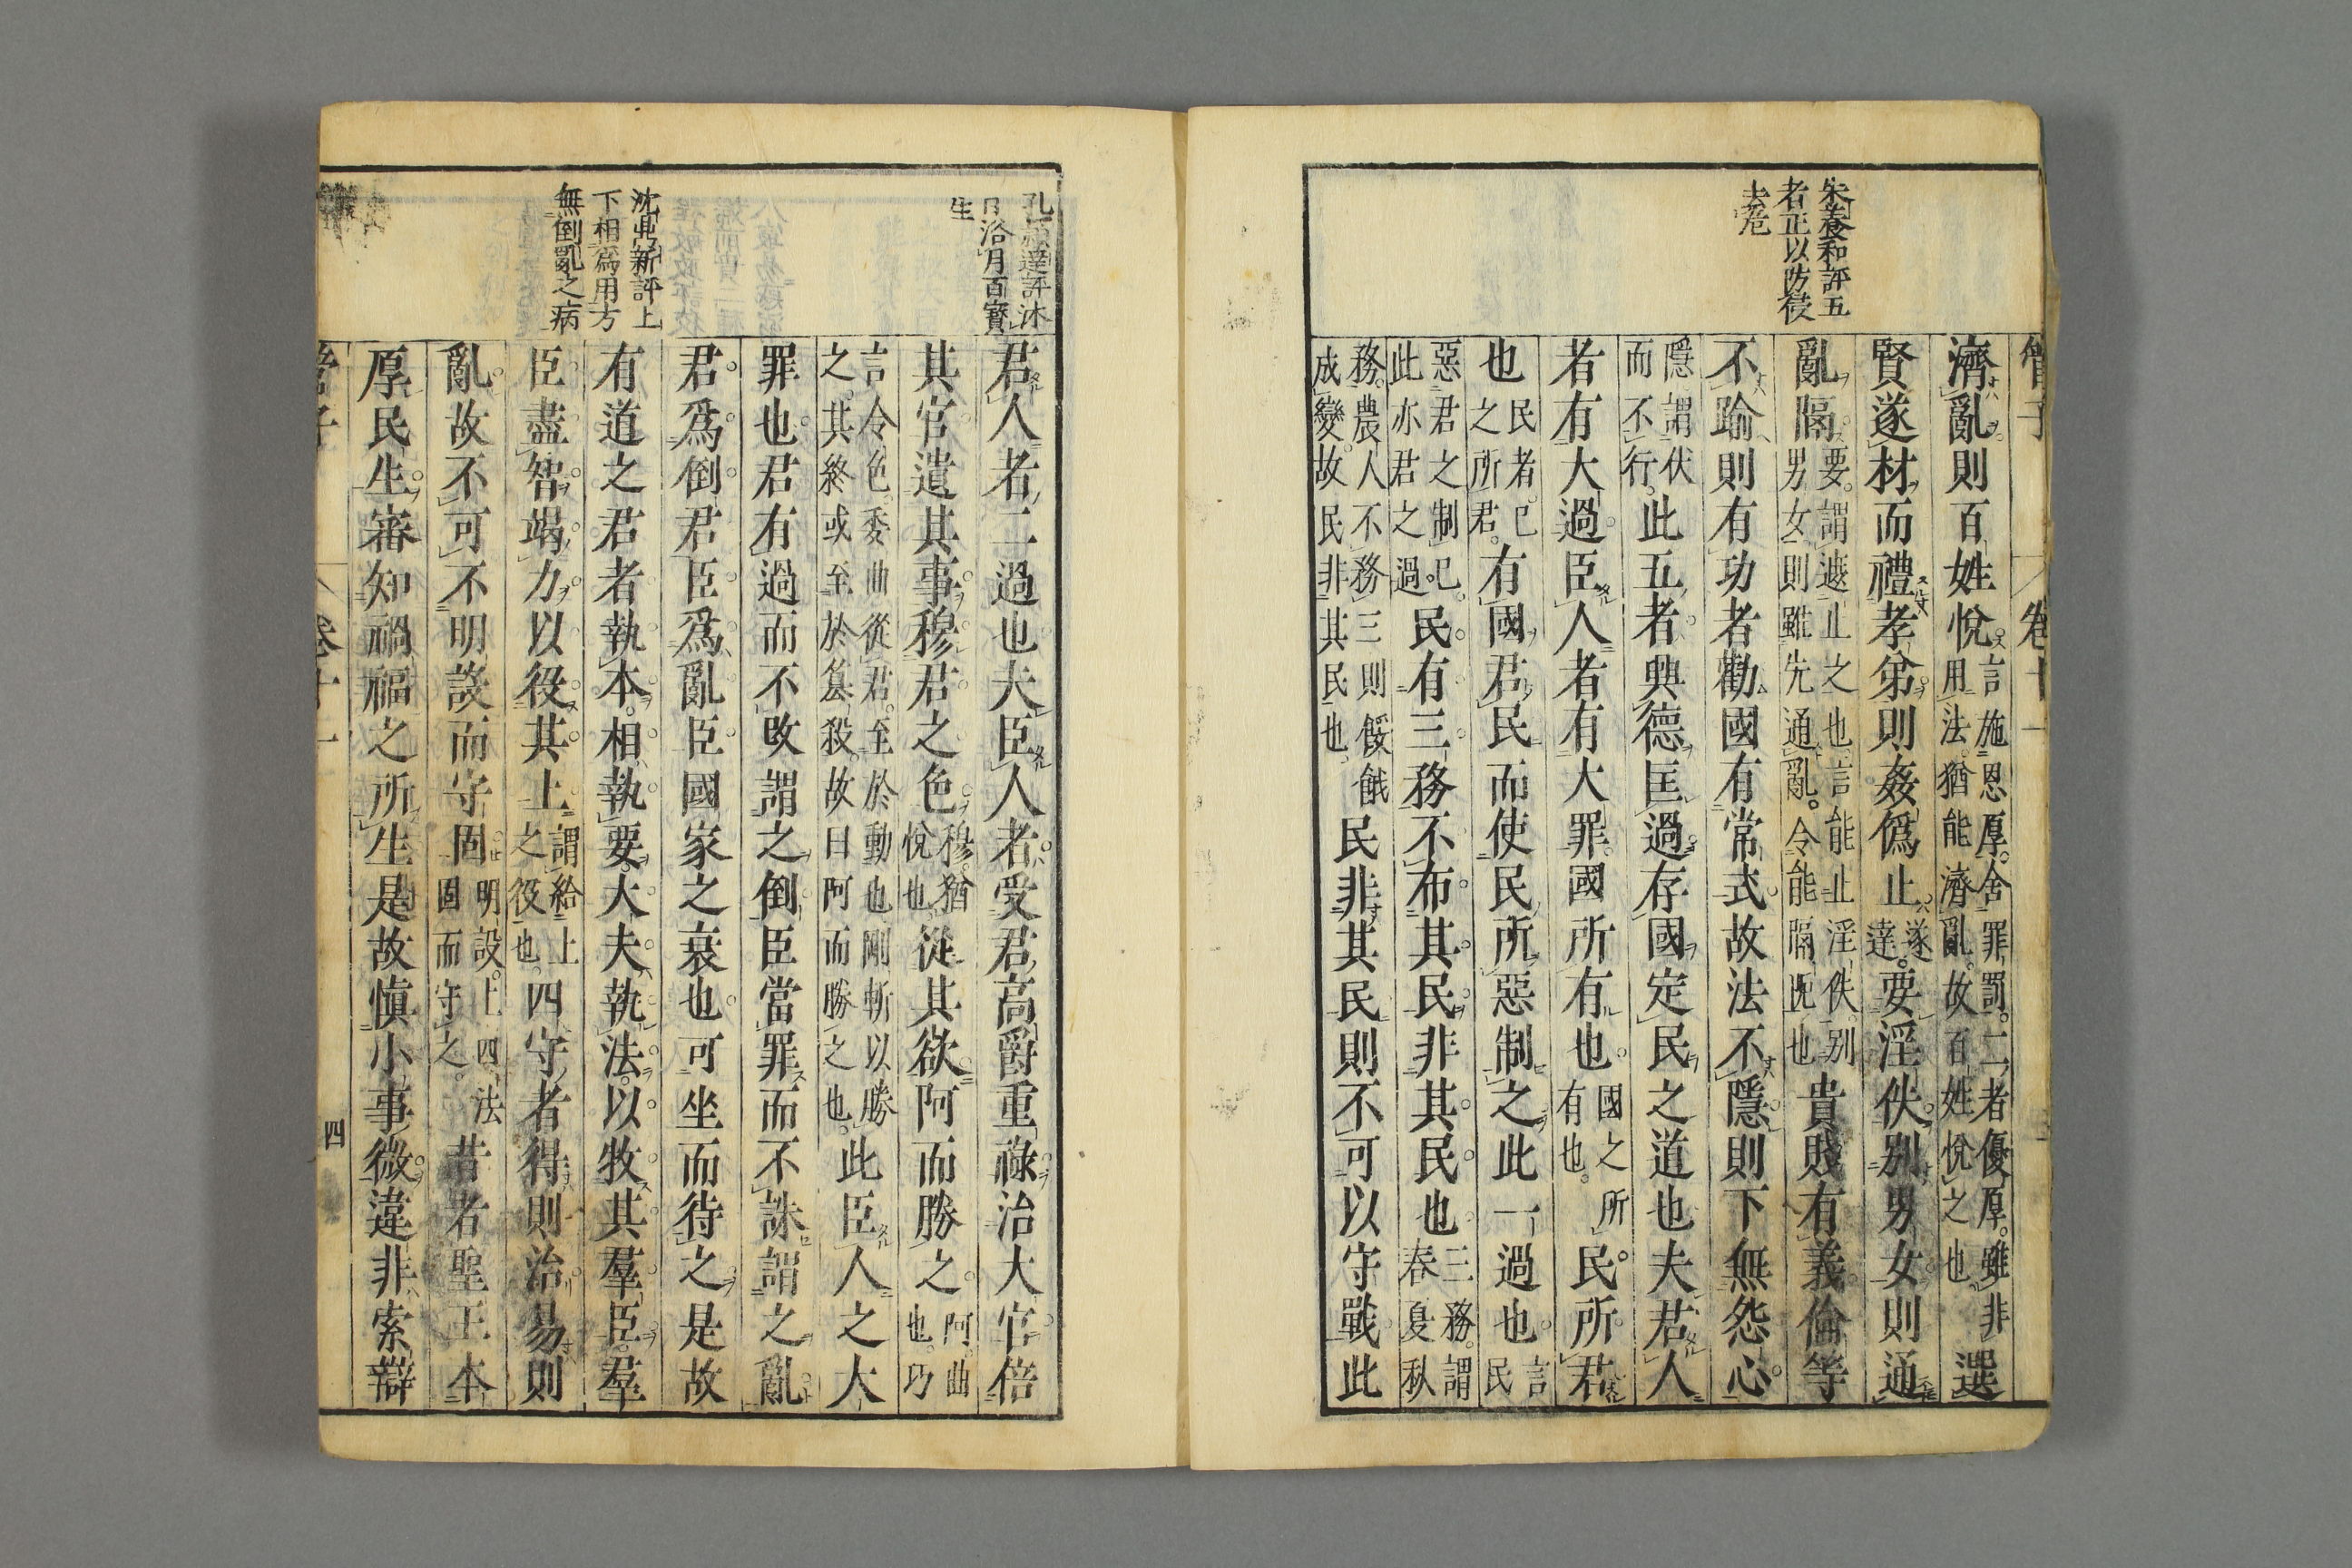 管子
卷十一
朱養和評五
者正以防侵
去危
濟亂則百姓悅言施恩厚舍罪罰二者優厚雖非用法猶能濟亂故百姓悅之也選
賢遂材而禮孝弟則姦僞止遂達要淫佚別男女則通
亂隔要謂遮止之也言能止淫佚別男女則雖先通亂令能隔旣也貴賤有義倫等
不踰則有功者勸國有常式故法不隱則下無怨心
隱謂伏而不行此五者興德匡過存國定民之道也夫君人
者有大過臣人者有大罪國所有也國之所有也民所君
也民者已之所君有國君民而使民所惡制之此一過也言民
惡君之制已此亦君之過民有三務不布其民非其民也三務謂春夏秋
務農人不務三則餒餓成變故民非其民也民非其民則不可以守戰此
孔穎達評沐
日浴月百寶
生
沈鼎新評上
下相爲用方
無倒亂之病
君人者二過也夫臣人者受君高爵重祿治大官倍
其官遺其事穆君之色穆猶悅也從其欲阿而勝之阿曲也巧
言令色委曲從君至於動也剛斬以勝之其終或至於簒殺故曰阿而勝之也此臣人之大
罪也君有過而不改謂之倒臣當罪而不誅謂之亂
君爲倒君臣爲亂臣國家之衰也可坐而待之是故
有道之君者執本相執要大夫執法以牧其羣臣羣
臣盡智竭力以役其上謂給上之役也四守者得則治易則
亂故不可不明設而守固明設上四法固而守之昔者聖王本
厚民生審知禍福之所生是故愼小事微違非索辯
管子
卷十一
四